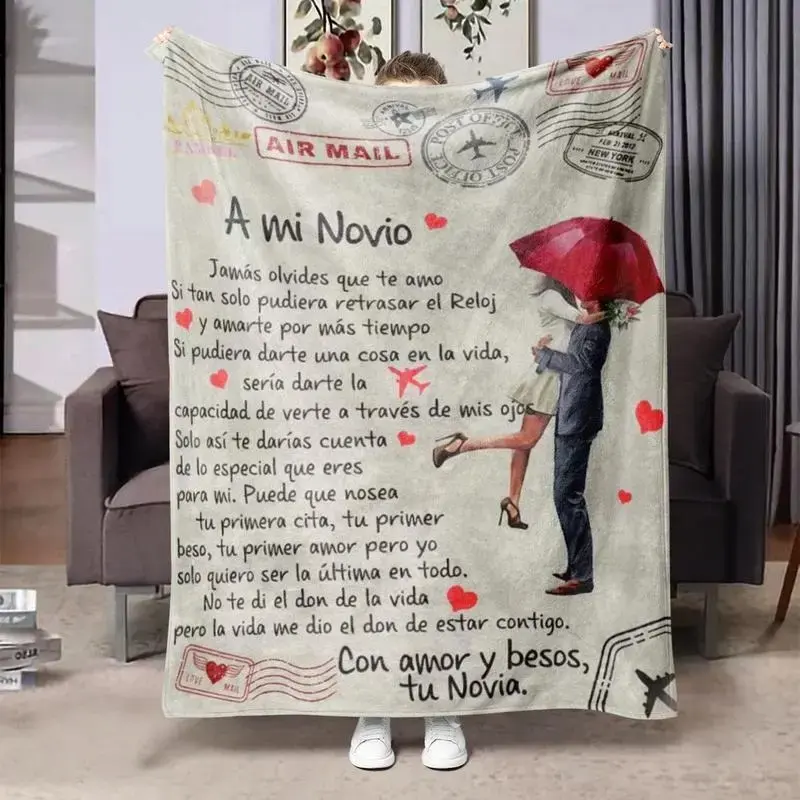 AIR MAIL
AIR MAIL
ARRIVAL
POST OFFICE
POST OFFICE
LOVE MAIL
ARRIVAL
FEB 21 2012
NEW YORK
A mi Novio
Jamás olvides que te amo
Si tan solo pudiera retrasar el Reloj
y amarte por más tiempo
Si pudiera darte una cosa en la vida,
sería darte la
capacidad de verte a través de mis ojos
Solo así te darías cuenta
de lo especial que eres
para mi. Puede que nosea
tu primera cita, tu primer
beso, tu primer amor pero yo
solo quiero ser la última en todo.
No te di el don de la vida
pero la vida me dio el don de estar contigo.
Con amor y besos,
tu Novia.
LOVE MAIL